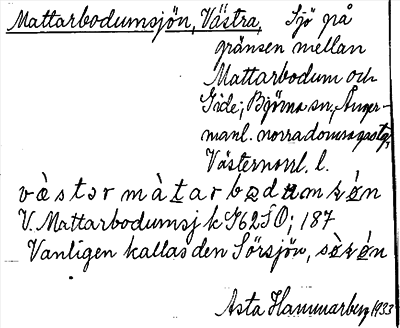 Mattarbodumsjön, Västra, Sjö på
gränsen mellan
Mattarbodum och
Gide; Björna sn, Ånger-
manl. norra domsagastg,
Västernorrl. l.
vȁstər màtarbodumʂø̀n
V. Mattarbodumsj k J62SO; 187
Vanligen kallas den Sörsjön, sø̀rʂø̀n
Asta Hammarberg 1933